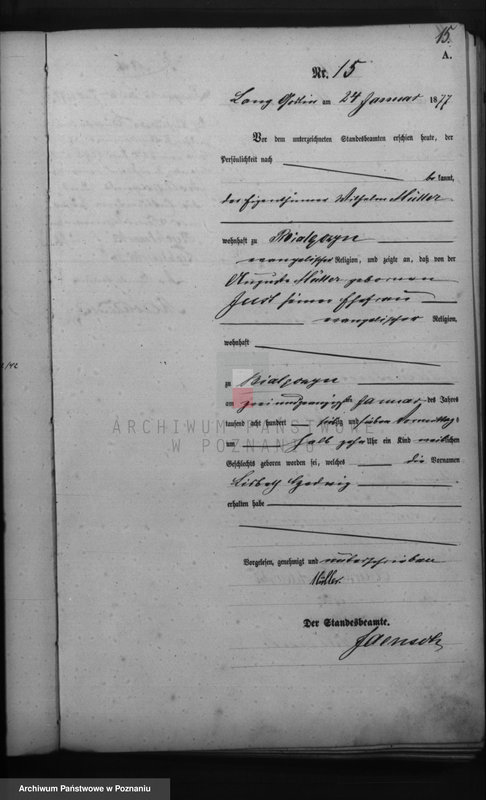 15.
A.
Nr. 15
Lang Goslin am 24 Januar 1877
Vor dem unterzeichneten Standesbeamten erschien heute, der
Persönlichkeit nach
be kannt,
der Eigenthümer Wilhelm Müller
wohnhaft zu
evangelischer Religion, und zeigte an, daß von der
Auguste Müller geborenen
Just seiner Ehefrau
evangelischer Religion,
wohnhaft
zu
am zwei und zwanzigsten Januar des Jahres
tausend acht hundert siebzig und sieben Vormittags
um halb zehn Uhr ein Kind weiblichen
Geschlechts geboren worden sei, welches die Vornamen
Lisbeth Hedwig
erhalten habe
Vorgelesen, genehmigt und unterschrieben
Müller.
Der Standesbeamte.
Jaensch
ARCHIWUM PAŃSTWOWE
W POZNANIU
Archiwum Państwowe w Poznaniu